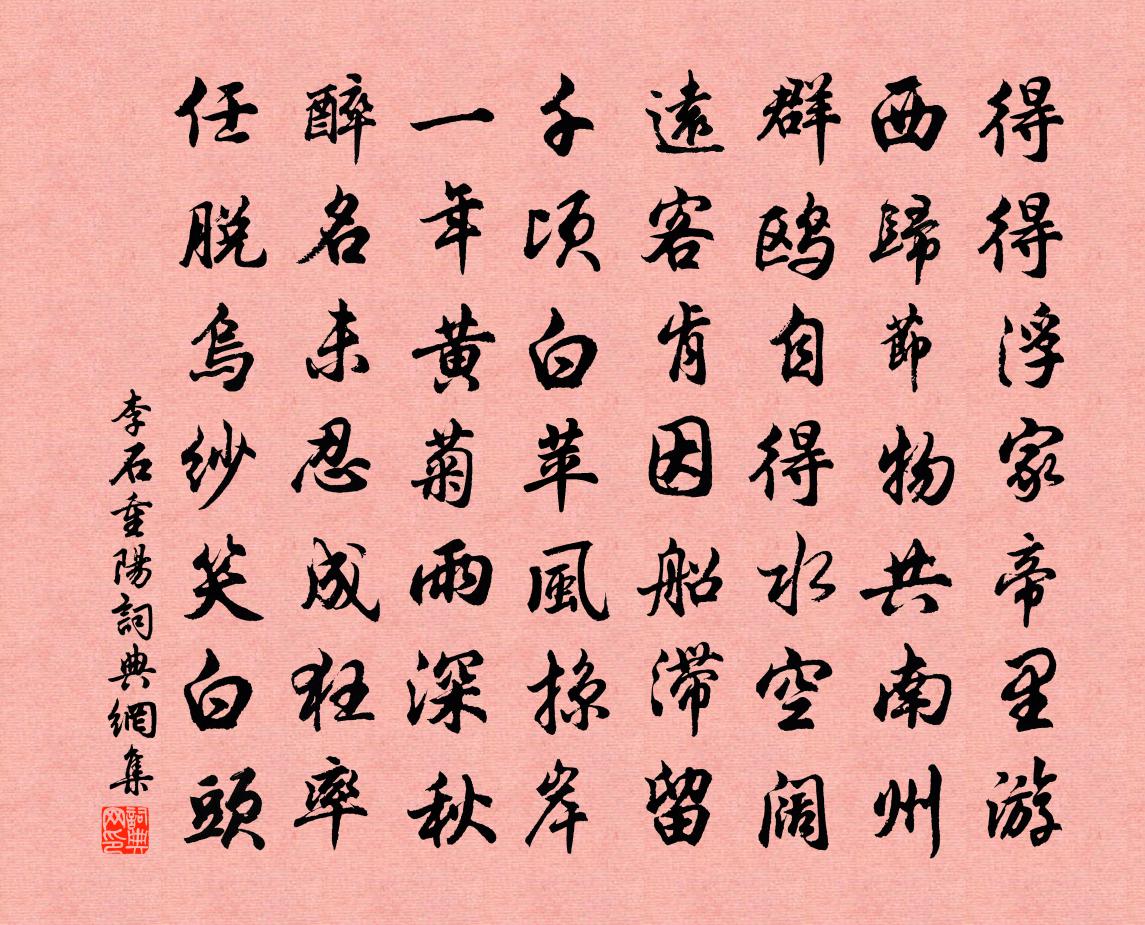 得得浮家帝里游
西歸節物共南州
群鸥自得水空闊
遠客肯因船滞留
千頃白苹風掠岸
一年黄菊雨深秋
醉名未忍成狂率
任脱烏紗笑白頭
李石重陽詞典網集
詞典网印